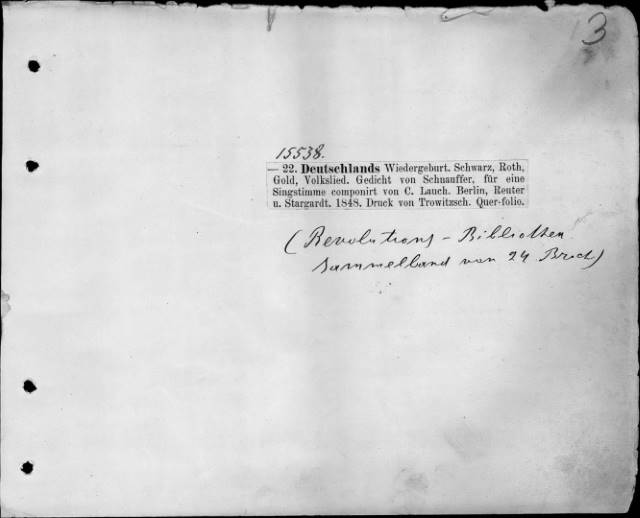 3
15538.
— 22. Deutschlands Wiedergeburt. Schwarz, Roth,
Gold, Volkslied. Gedicht von Schnauffer, für eine
Singstimme componirt von C. Lauch. Berlin, Reuter
u. Stargardt. 1848. Druck von Trowitzsch. Quer-folio.
(Revolutions - Bibliothek
Sammelband von 24